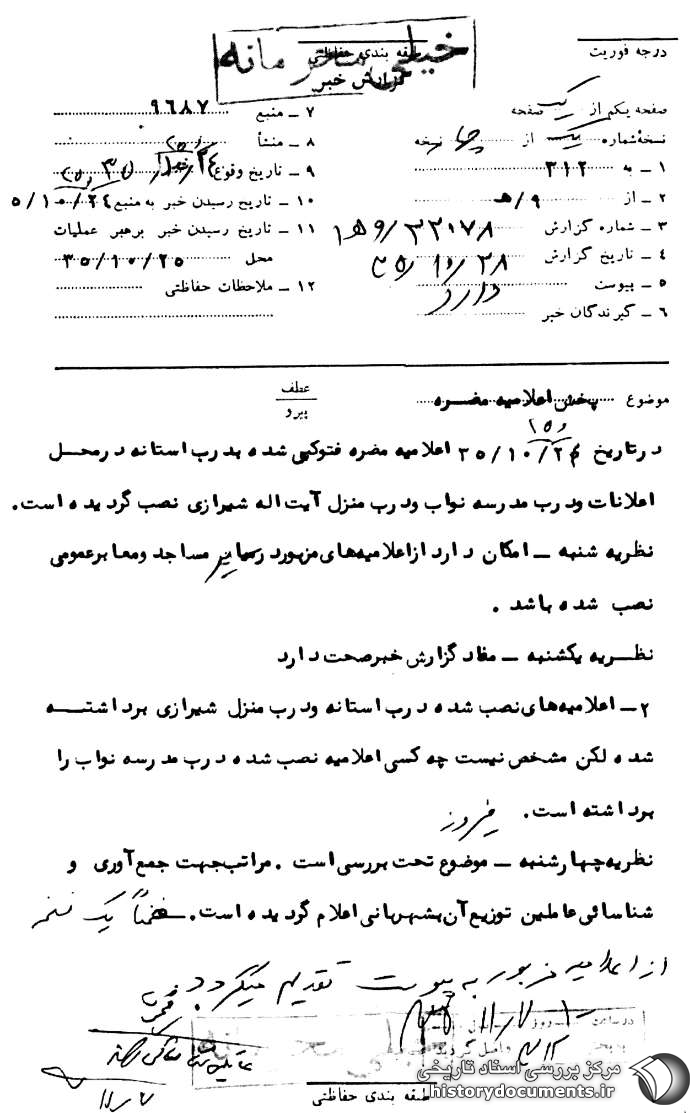 درجه فوریت
طبقه بندی حفاظتی
خیلی محرمانه
گزارش خبر
صفحه یکم از یک صفحه
نسخهٔ شماره یک از چهار نسخه
۱ ــ به ۳۱۲
۲ ــ از ۹/هـ
۳ ــ شماره گزارش ۳۲۰۷۸/۹هـ۱
۴ ــ تاریخ گزارش ۳۵/۱۰/۲۸
۵ ــ پیوست دارد
۶ ــ گیرندگان خبر
۷ ــ منبع ۹۶۸۷
۸ ــ منشأ
۹ ــ تاریخ وقوع
۱۰ ــ تاریخ رسیدن خبر به منبع
۱۱ ــ تاریخ رسیدن خبر برهبر عملیات
محل ۳۵/۱۰/۲۵
۱۲ ــ ملاحظات حفاظتی
موضوع پخش اعلامیه مضره
عطف
پیرو
درتاریخ ۳۵/۱۰/۲۴ اعلامیه مضره فتوکپی شده بدرب استانه درمحل
اعلانات ودرب مدرسه نواب ودرب منزل آیت اله شیرازی نصب گردیده است.
نظریه شنبه ــ امکان دارد ازاعلامیه‌های مزبوردرسایر مساجد ومعابرعمومی
نصب شده باشد .
نظریه یکشنبه ــ مفاد گزارش خبرصحت دارد
۲ــ اعلامیه‌های نصب شده درب استانه ودرب منزل شیرازی برداشتــه
شده لکن مشخص نیست چه کسی اعلامیه نصب شده درب مدرسه نواب را
برداشته است. فیروز
نظریه چهارشنبه ــ موضوع تحت بررسی است . مراتب جهت جمع آوری و
شناسائی عاملین توزیع آن بشهربانی اعلام گردیده است. ضمناً یک نسخه
از اعلامیه مزبور به پیوست تقدیم میگردد.
طبقه بندی حفاظتی
مرکز بررسی اسناد تاریخی
historydocuments.ir